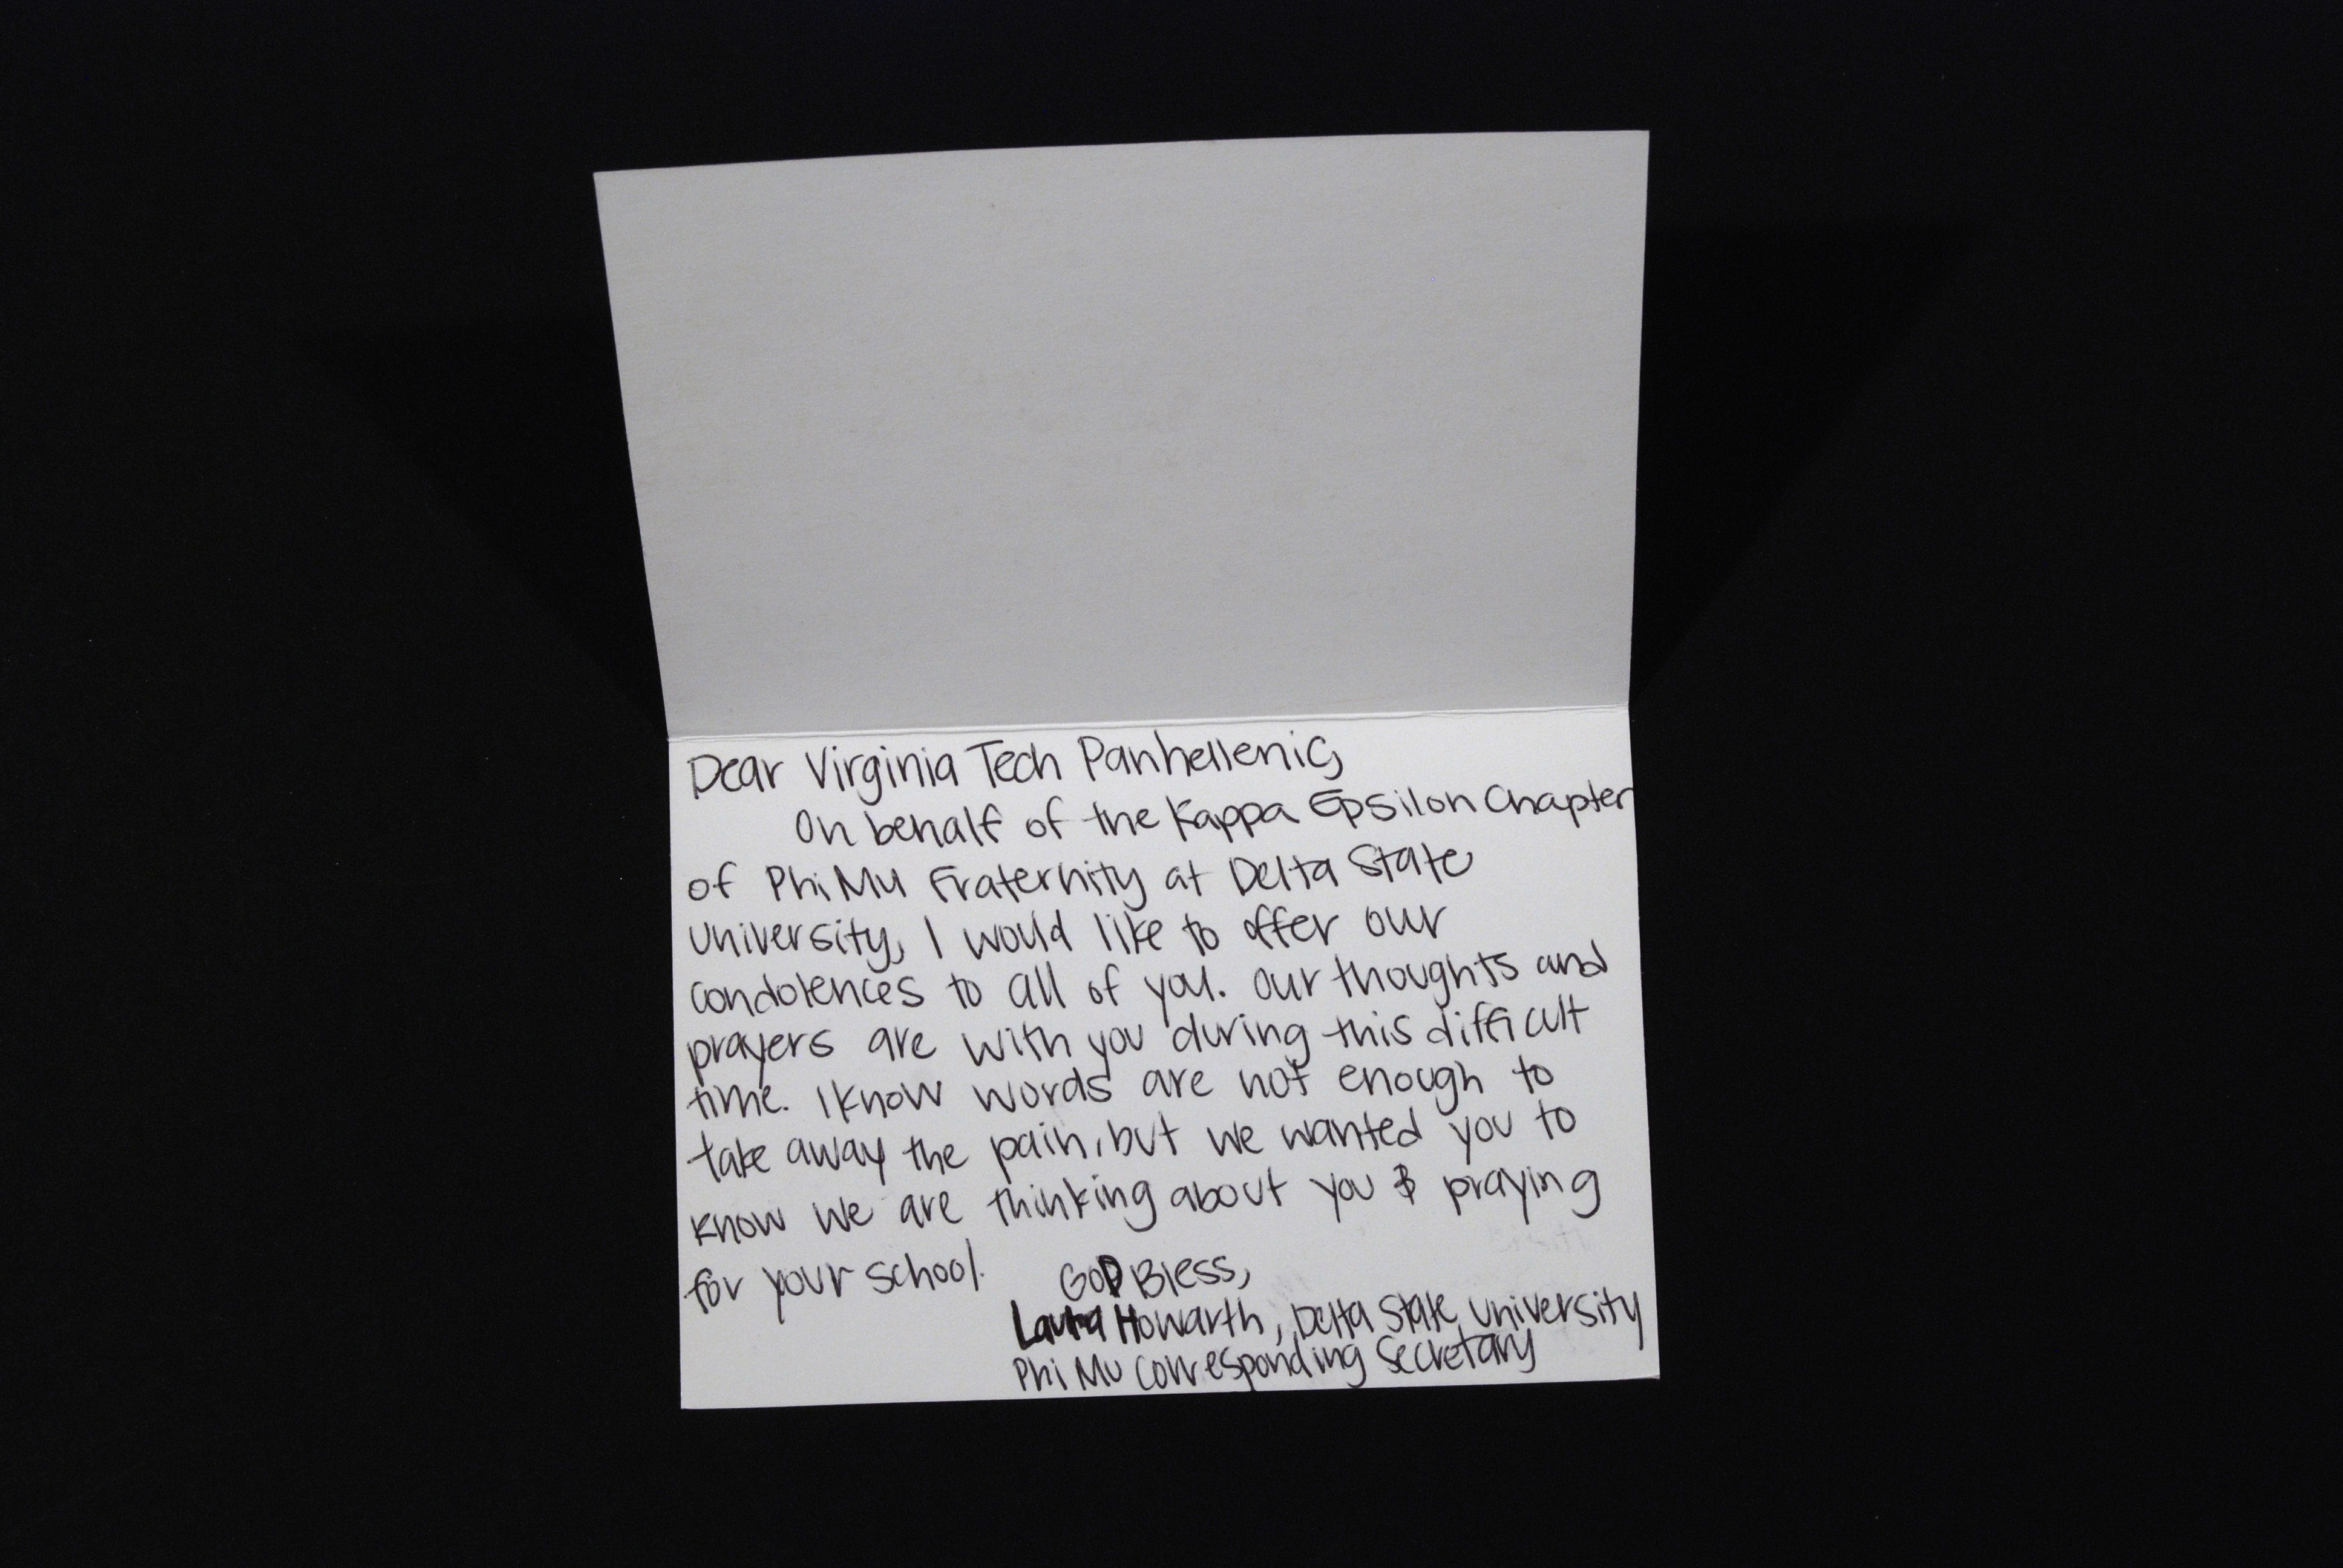 Dear Virginia Tech Panhellenic,
On behalf of the Kappa Epsilon Chapter
of Phi Mu Fraternity at Delta State
University, I would like to offer our
condolences to all of you. Our thoughts and
prayers are with you during this difficult
time. I know words are not enough to
take away the pain, but we wanted you to
know we are thinking about you & praying
for your school.
GOD Bless,
Laura Howarth, Delta State University
Phi Mu Corresponding Secretary